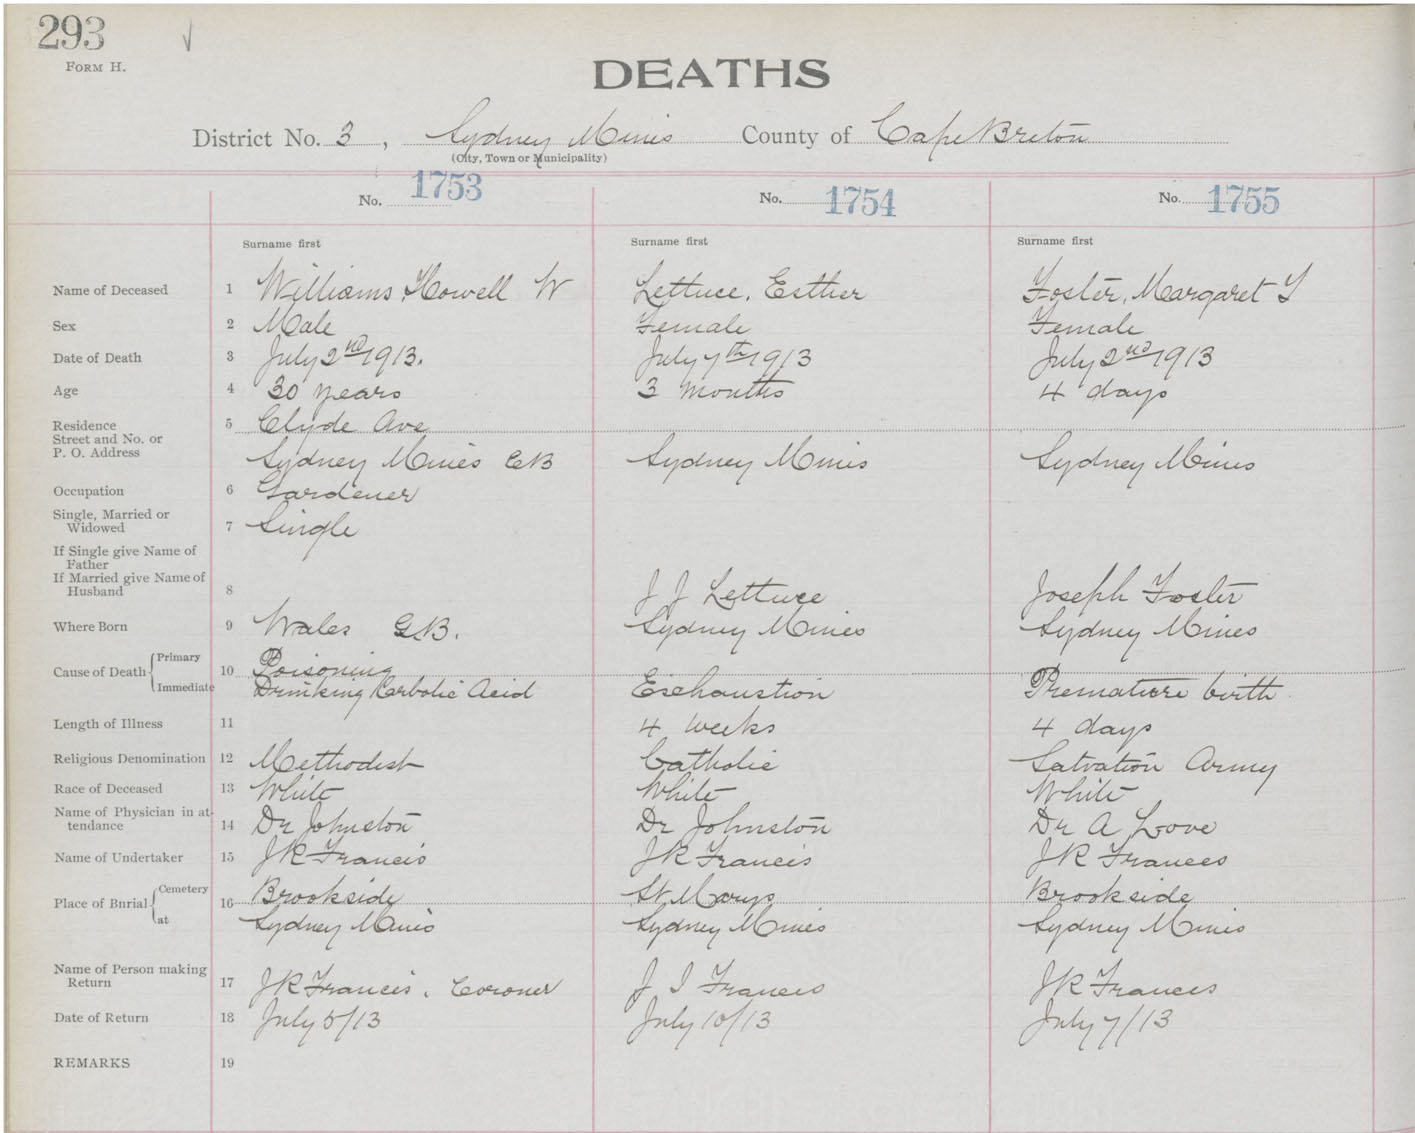 293
FORM H.
DEATHS
District No. 3, Sydney Mines County of Cape Breton
(City, Town or Municipality)
No. 1753 No. 1754 No. 1755
Surname first Surname first Surname first
Name of Deceased 1 Williams, Howell W Lettuce, Esther Foster, Margaret
Sex 2 Male Female Female
Date of Death 3 July 2nd 1913. July 7th 1913 July 2nd 1913
Age 4 30 years 3 months 4 days
Residence 5 Clyde Ave
Street and No. or
P. O. Address Sydney Mines CB Sydney Mines Sydney Mines
Occupation 6 Gardener
Single, Married or
Widowed 7 Single
If Single give Name of
Father
If Married give Name of
Husband 8 J J Lettuce Joseph Foster
Where Born 9 Wales G.B. Sydney Mines Sydney Mines
Cause of Death Primary 10 Poisoning
Immediate Drinking Carbolic Acid Exhaustion Premature birth
Length of Illness 11 4 weeks 4 days
Religious Denomination 12 Methodist Catholic Salvation Army
Race of Deceased 13 White White White
Name of Physician in at-
tendance 14 Dr Johnston Dr Johnston Dr A Love
Name of Undertaker 15 JR Francis JR Francis JR Frances
Place of Burial Cemetery 16 Brookside St Marys Brookside
at Sydney Mines Sydney Mines Sydney Mines
Name of Person making
Return 17 JR Francis, Coroner J I Francis JR Frances
Date of Return 18 July 5/13 July 10/13 July 7/13
REMARKS 19